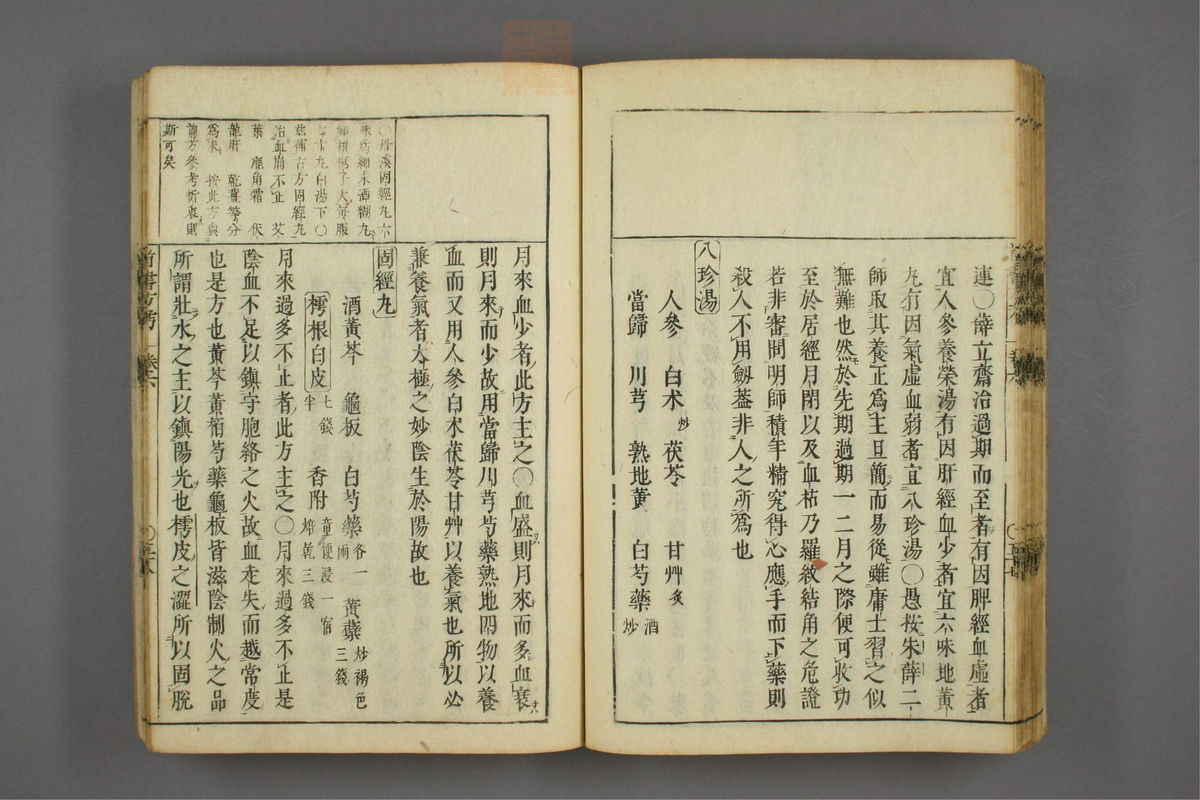 連○薛立齋治過期而至者有因脾經血虛者
宜人參養榮湯有因肝經血少者宜六味地黃
丸有因氣虛血弱者宜八珍湯○愚按朱薛二
師取其養正爲主且簡而易從雖庸士習之似
無難也然於先期過期一二月之際便可收功
至於居經月閉以及血枯乃羅紋結角之危證
若非審問明師積年精究得心應手而下藥則
殺人不用劔葢非人之所爲也
八珍湯
人參 白术炒 茯苓 甘艸炙
當歸 川芎 熟地黃 白芍藥酒炒
○丹溪固經丸六
味爲細末酒糊丸
如梧桐子大每服
五十丸白湯下○
玆補古方固經丸
治血崩不止 艾
葉 鹿角霜 伏
龍肝 乾薑等分
爲末 按此方與
前方參考折衷則
斯可矣
月來血少者此方主之○血盛則月來而多血衰
則月來而少故用當歸川芎芍藥熟地四物以養
血而又用人參白术茯苓甘艸以養氣也所以必
兼養氣者太極之妙陰生於陽故也
固經丸
酒黃芩 龜板 白芍藥各一兩 黃蘗炒褐色三錢
樗根白皮七錢半 香附童便浸一宿焙乾三錢
月來過多不止者此方主之○月來過多不止是
陰血不足以鎮守胞絡之火故血走失而越常度
也是方也黃芩黃栢芍藥龜板皆滋陰制火之品
所謂壯水之主以鎮陽光也樗皮之澀所以固脫